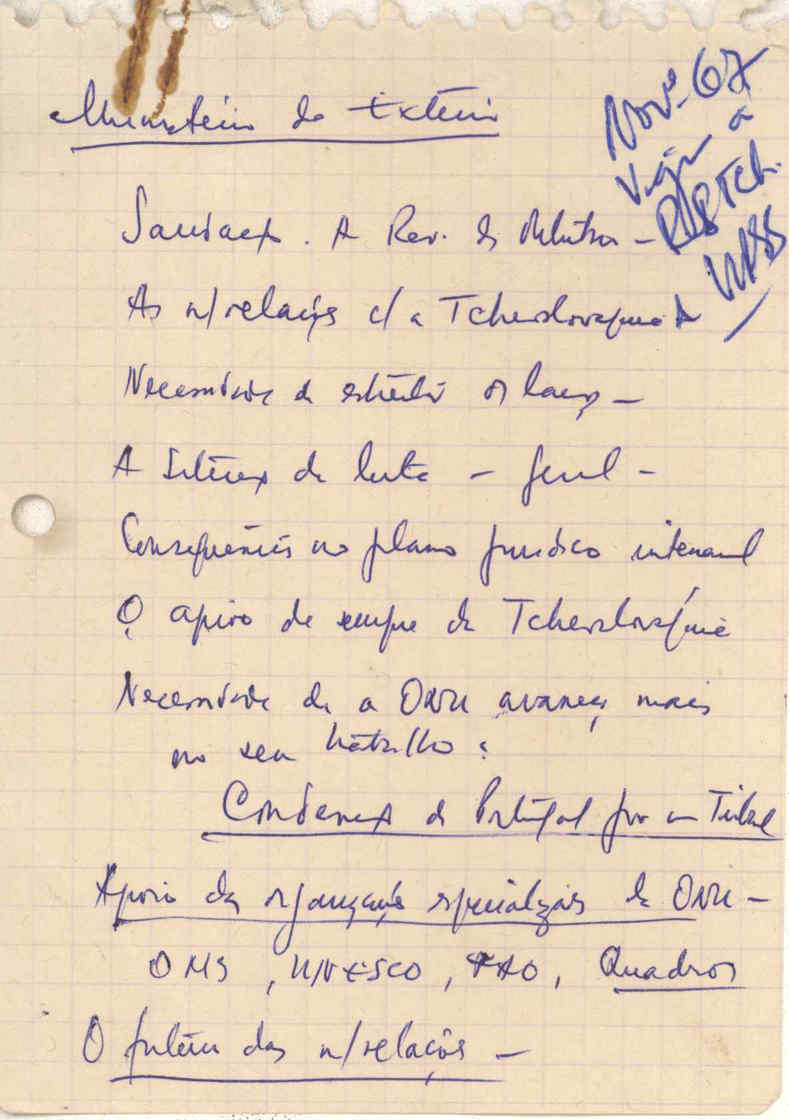 Ministério do Exterior
Nov. 67
Viagem a
RDA Tch.
URSS
Saudação. A Rev. de Outubro –
As n/relações c/ a Tchecoslováquia
Necessidade de estreitar os laços –
A situação da luta – geral –
Consequências no plano jurídico internacional
O apoio de sempre da Tchecoslováquia
Necessidade de a ONU avançar mais
no seu trabalho:
Condenação de Portugal por um Tribunal
Apoio das organizações especializadas da ONU –
OMS, UNESCO, FAO, Quadros
O futuro das n/relações –